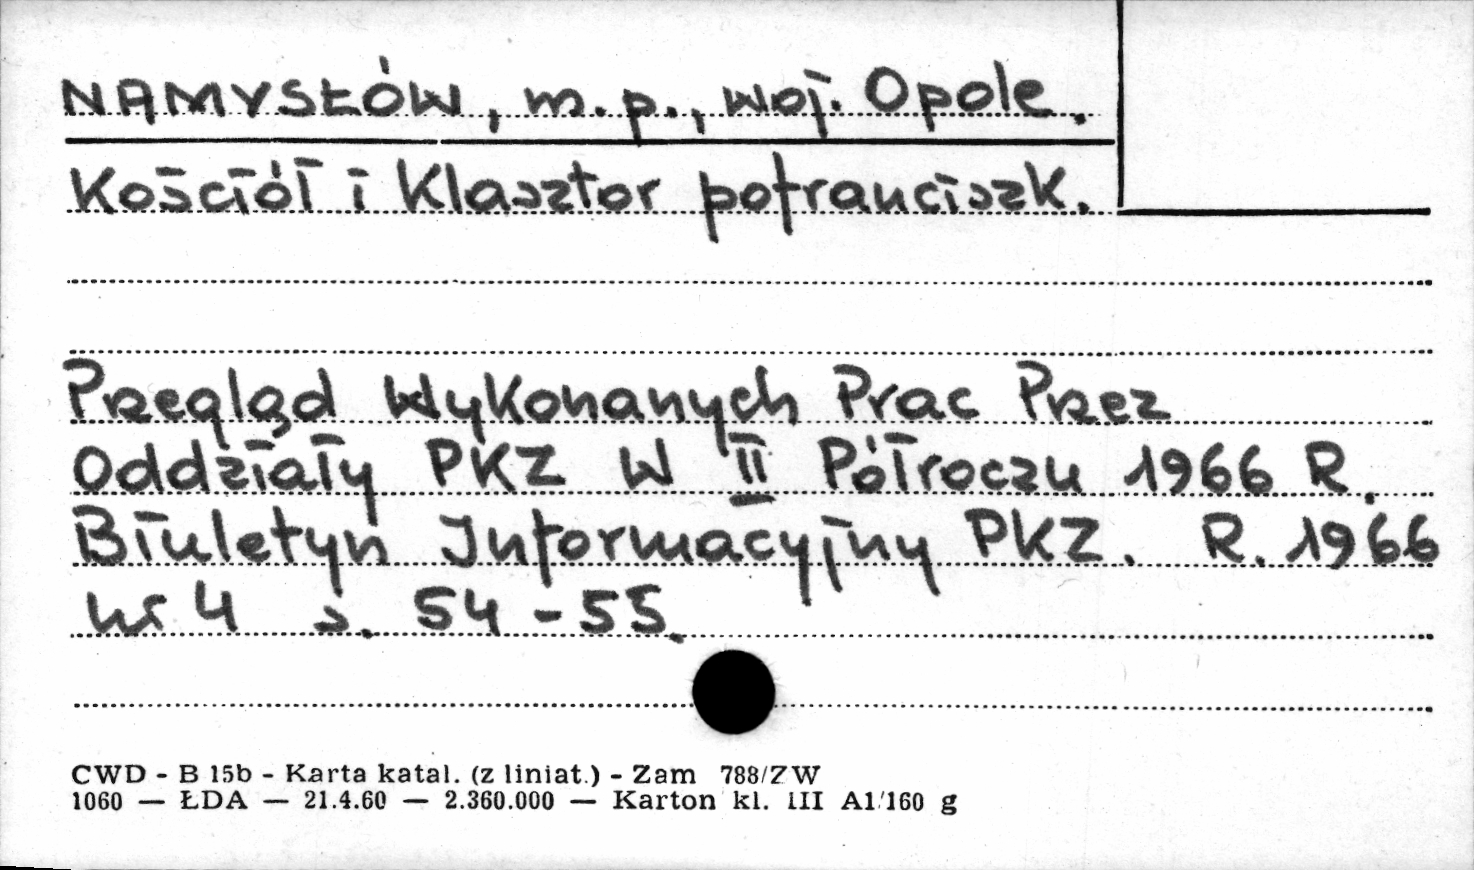 NAMYSŁÓW, m.p., woj. Opole.
Kościół i Klasztor pofranciszk.
Przegląd Wykonanych Prac Przez
Oddziały PKZ W II Półroczu 1966 R.
Biuletyn Informacyjny PKZ. R. 1966
nr 4 s. 54-55.
CWD - B 15b - Karta katal. (z liniat.) - Zam 788/ZW
1060 — ŁDA — 21.4.60 — 2.360.000 — Karton kl. III A1/160 g